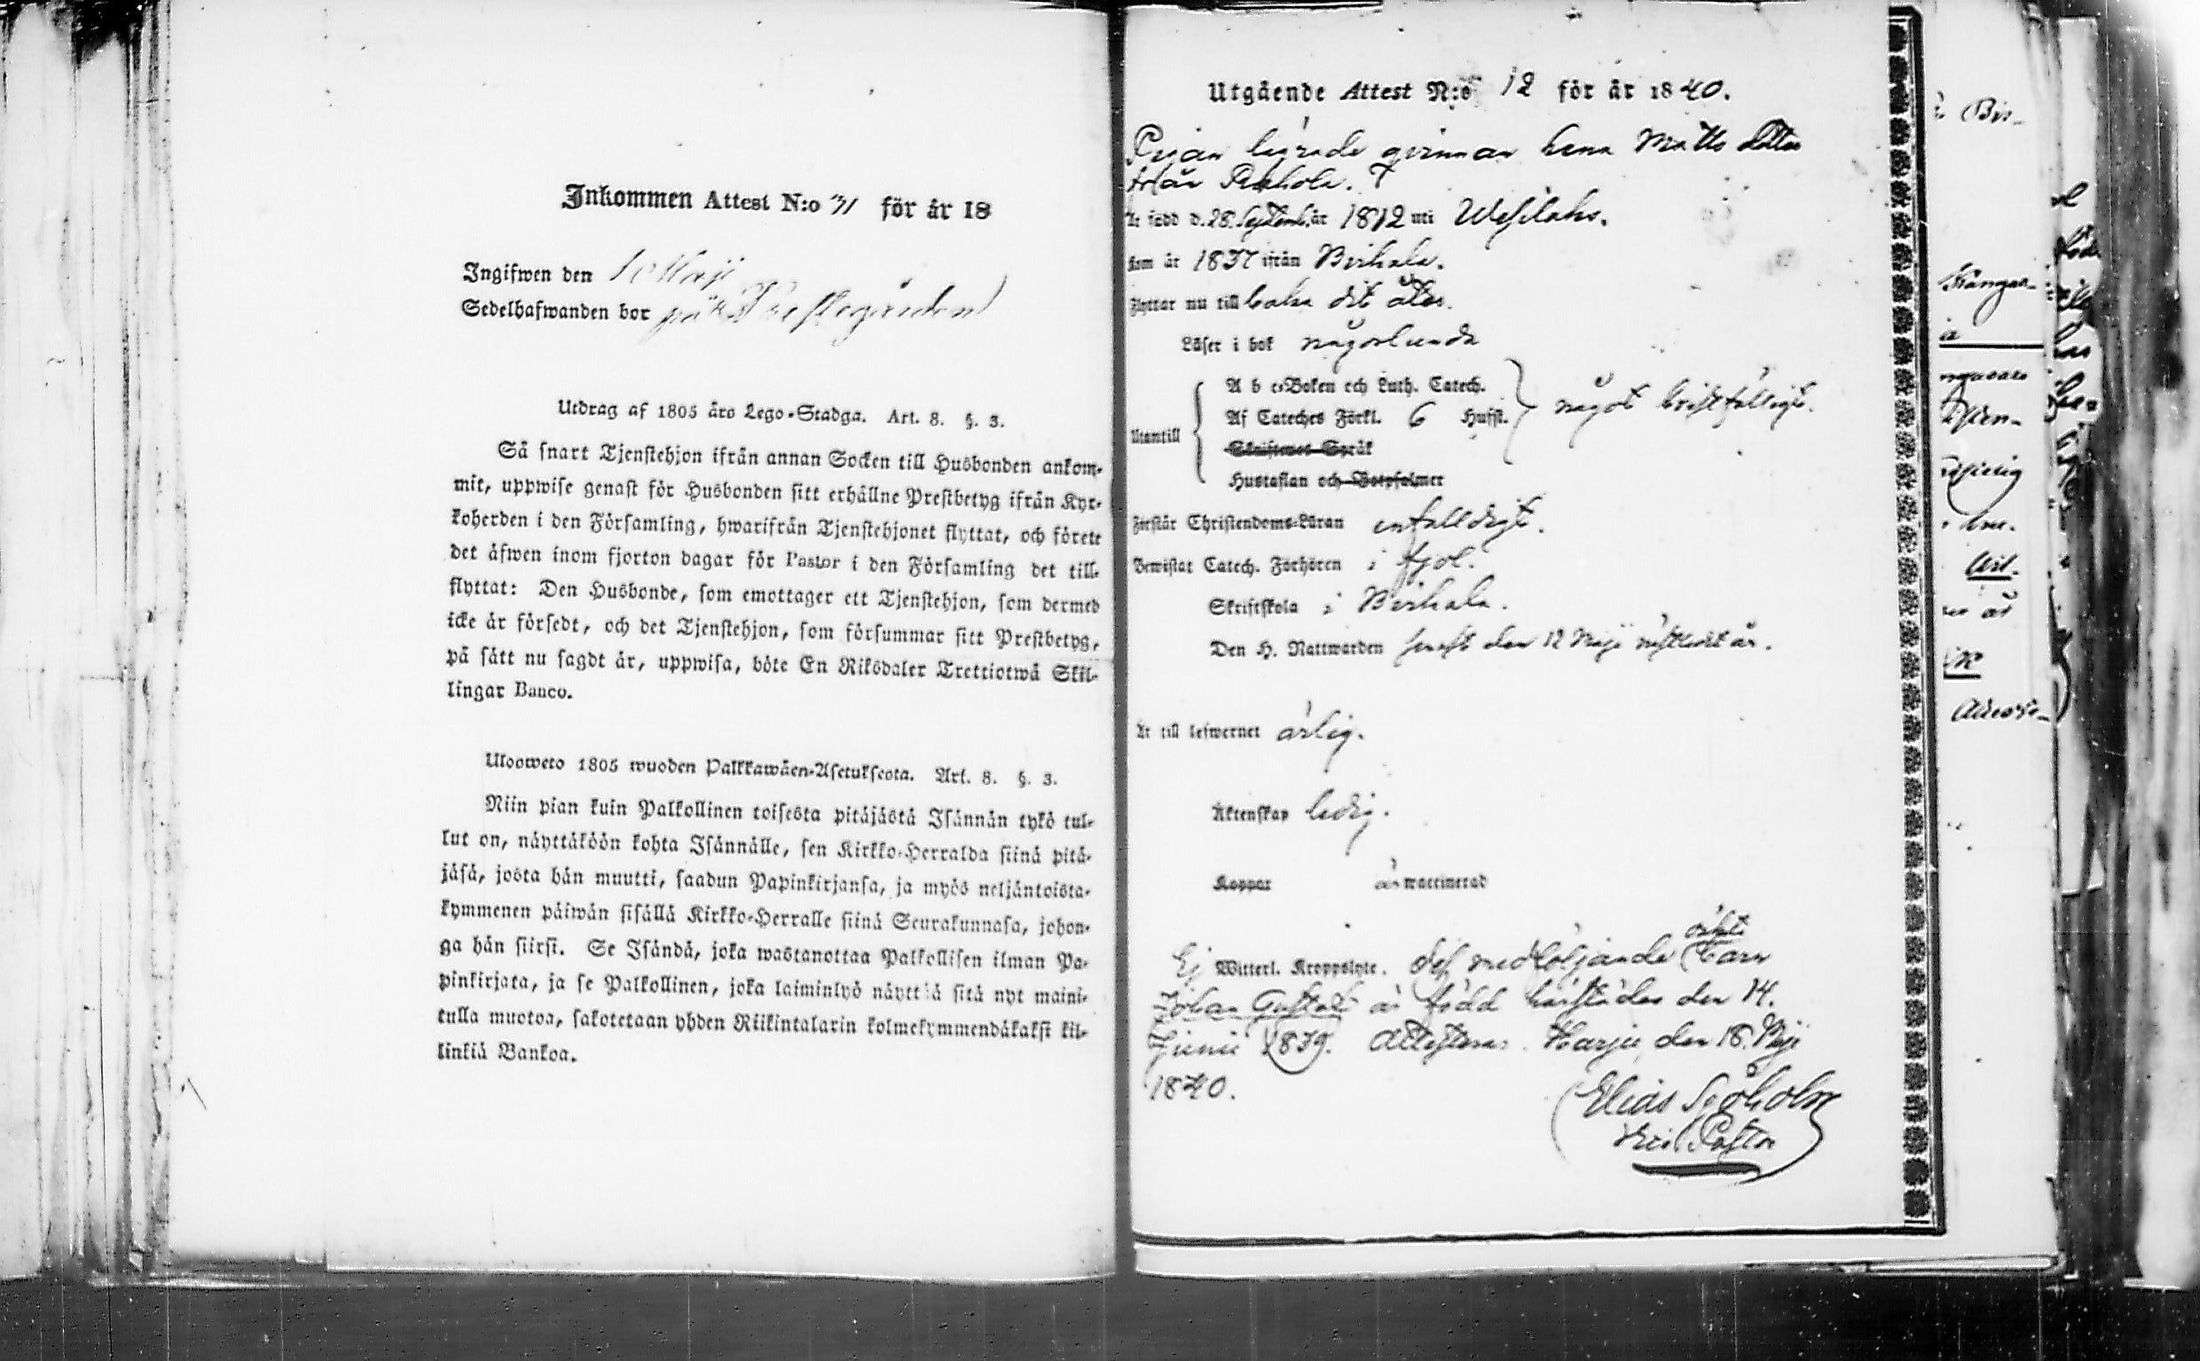 Inkommen Attest N:o 31 för år 18
Ingifwen den Maji
Sedelhafwanden bor på Prestegården
Utdrag af 1805 års Lego-Stadga. Art. 8. §. 3.
Så snart Tjenstehjon ifrån annan Socken till Husbonden ankom-
mit, uppwise genast för Husbonden sitt erhållne Prestbetyg ifrån Kyr-
koherden i den Församling, hwarifrån Tjenstehjonet flyttat, och förete
det äfwen inom fjorton dagar för Pastor i den Församling det till-
flyttat: Den Husbonde, som emottager ett Tjenstehjon, som dermed
icke är försedt, och det Tjenstehjon, som försummar sitt Prestbetyg,
på sätt nu sagdt är, uppwisa, böte En Riksdaler Trettiotwå Skil-
lingar Banco.
Ulosweto 1805 wuoden Palkkawäen-Asetuksesta. Art. 8. §. 3.
Niin pian kuin Palkollinen toisesta pitäjästä Isännän tykö tul-
lut on, näyttäköön kohta Isännälle, sen Kirkko-Herralda siinä pitä-
jäsä, josta hän muutti, saadun Papinkirjansa, ja myös neljäntoista-
kymmenen päiwän sisällä Kirkko-Herralle siinä Seurakunnasa, johon-
ga hän siirsi. Se Isändä, joka wastanottaa Palkollisen ilman Pa-
pinkirjata, ja se Palkollinen, joka laiminlyö näyttää sitä nyt maini-
tulla muotoa, sakotetaan yhden Riikintalarin kolmekymmendäkaksi kil-
linkiä Bankoa.
Utgående Attest N:o 12 för år 1840.
Pigan lägrade qvinnan Lena Matts dotter
från
Är född d. 28 Septemb. år 1812 uti Wesilaks.
Kom år 1837 ifrån Birkala.
Flyttar nu till baka dit åter.
Läser i bok någorlunda
Utantill
A b c-Boken och Luth. Catech.
Af Cateches Förkl. 6 Hufst.
något bristfälligt.
Skriftenes Språk
Hustaflan och Botpsalmer
Förstår Christendoms-Läran enfalldigt.
Bewistat Catech. Förhören i fjol.
Skriftskola i Birkala.
Den H. Nattwarden senast den 12 Maji sistledit år.
Är till lefwernet ärlig.
Äktenskap ledig.
Koppar är waccinerad
Ej Witterl. Kroppslyte. Des medföljande oäkta barn
Johan Gustaf är född härstädes den 14.
Junii 1839. Attesteras. Harju den 18. Maji
1840.
Elias Sjöholm
Vice Pastor
Bis-